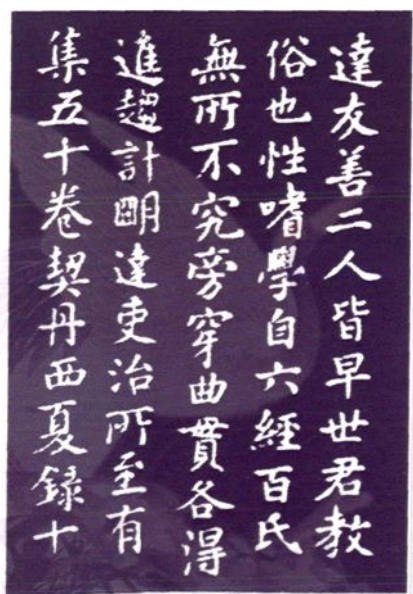 達友善二人皆早世君教
俗也性嗜學自六經百氏
無所不究旁穿曲貫各得
進趨計明達吏治所至有
集五十卷契丹西夏録十